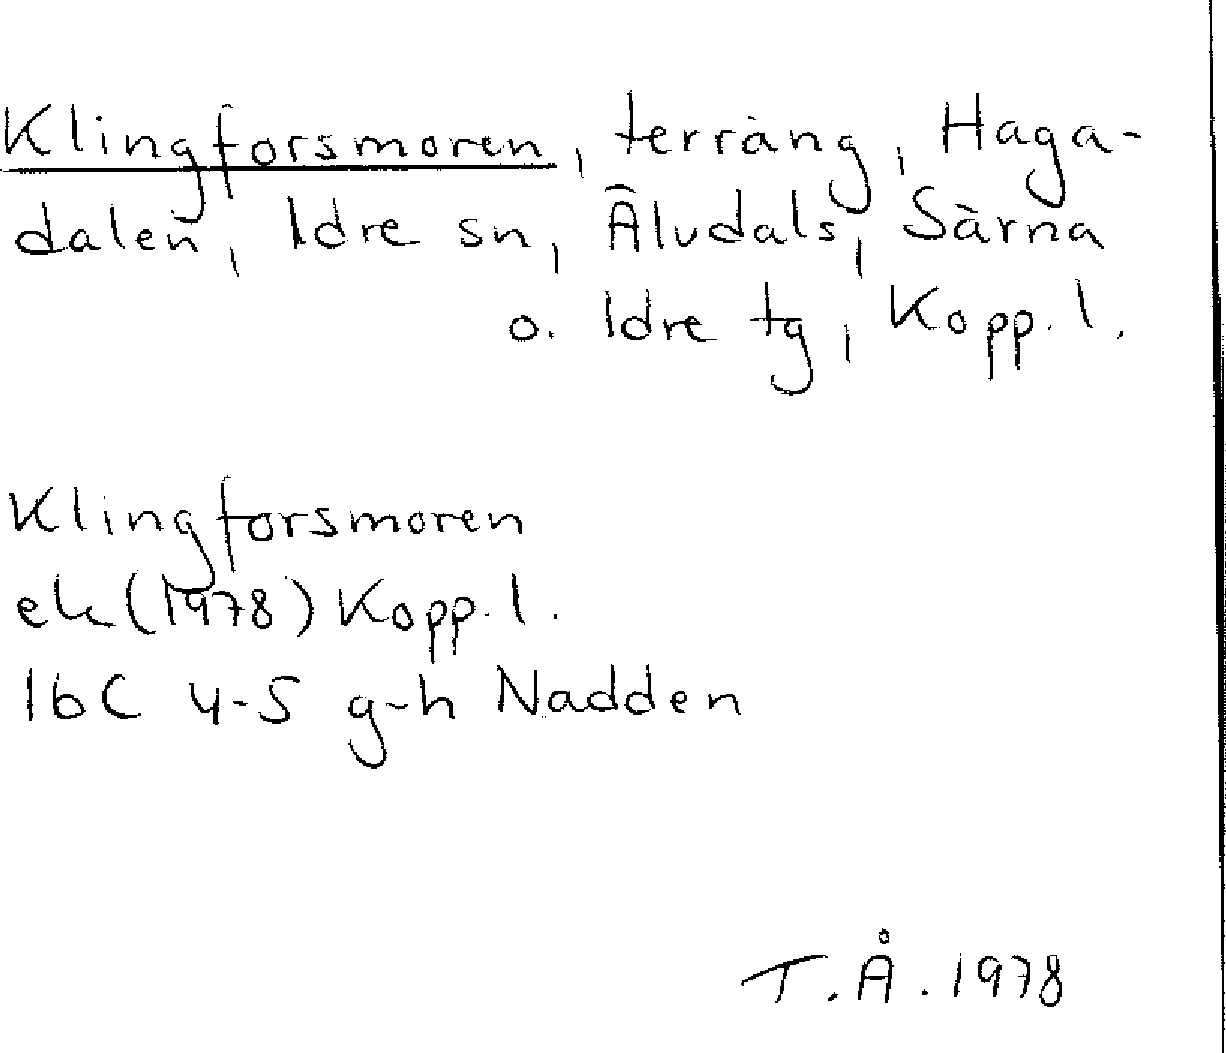 Klingforsmoren, terräng, Haga-
dalen, Idre sn, Älvdals, Särna
o. Idre tg, Kopp. l.
Klingforsmoren
ek (1978) Kopp. l.
16C 4-5 g-h Nadden
T.Å. 1978